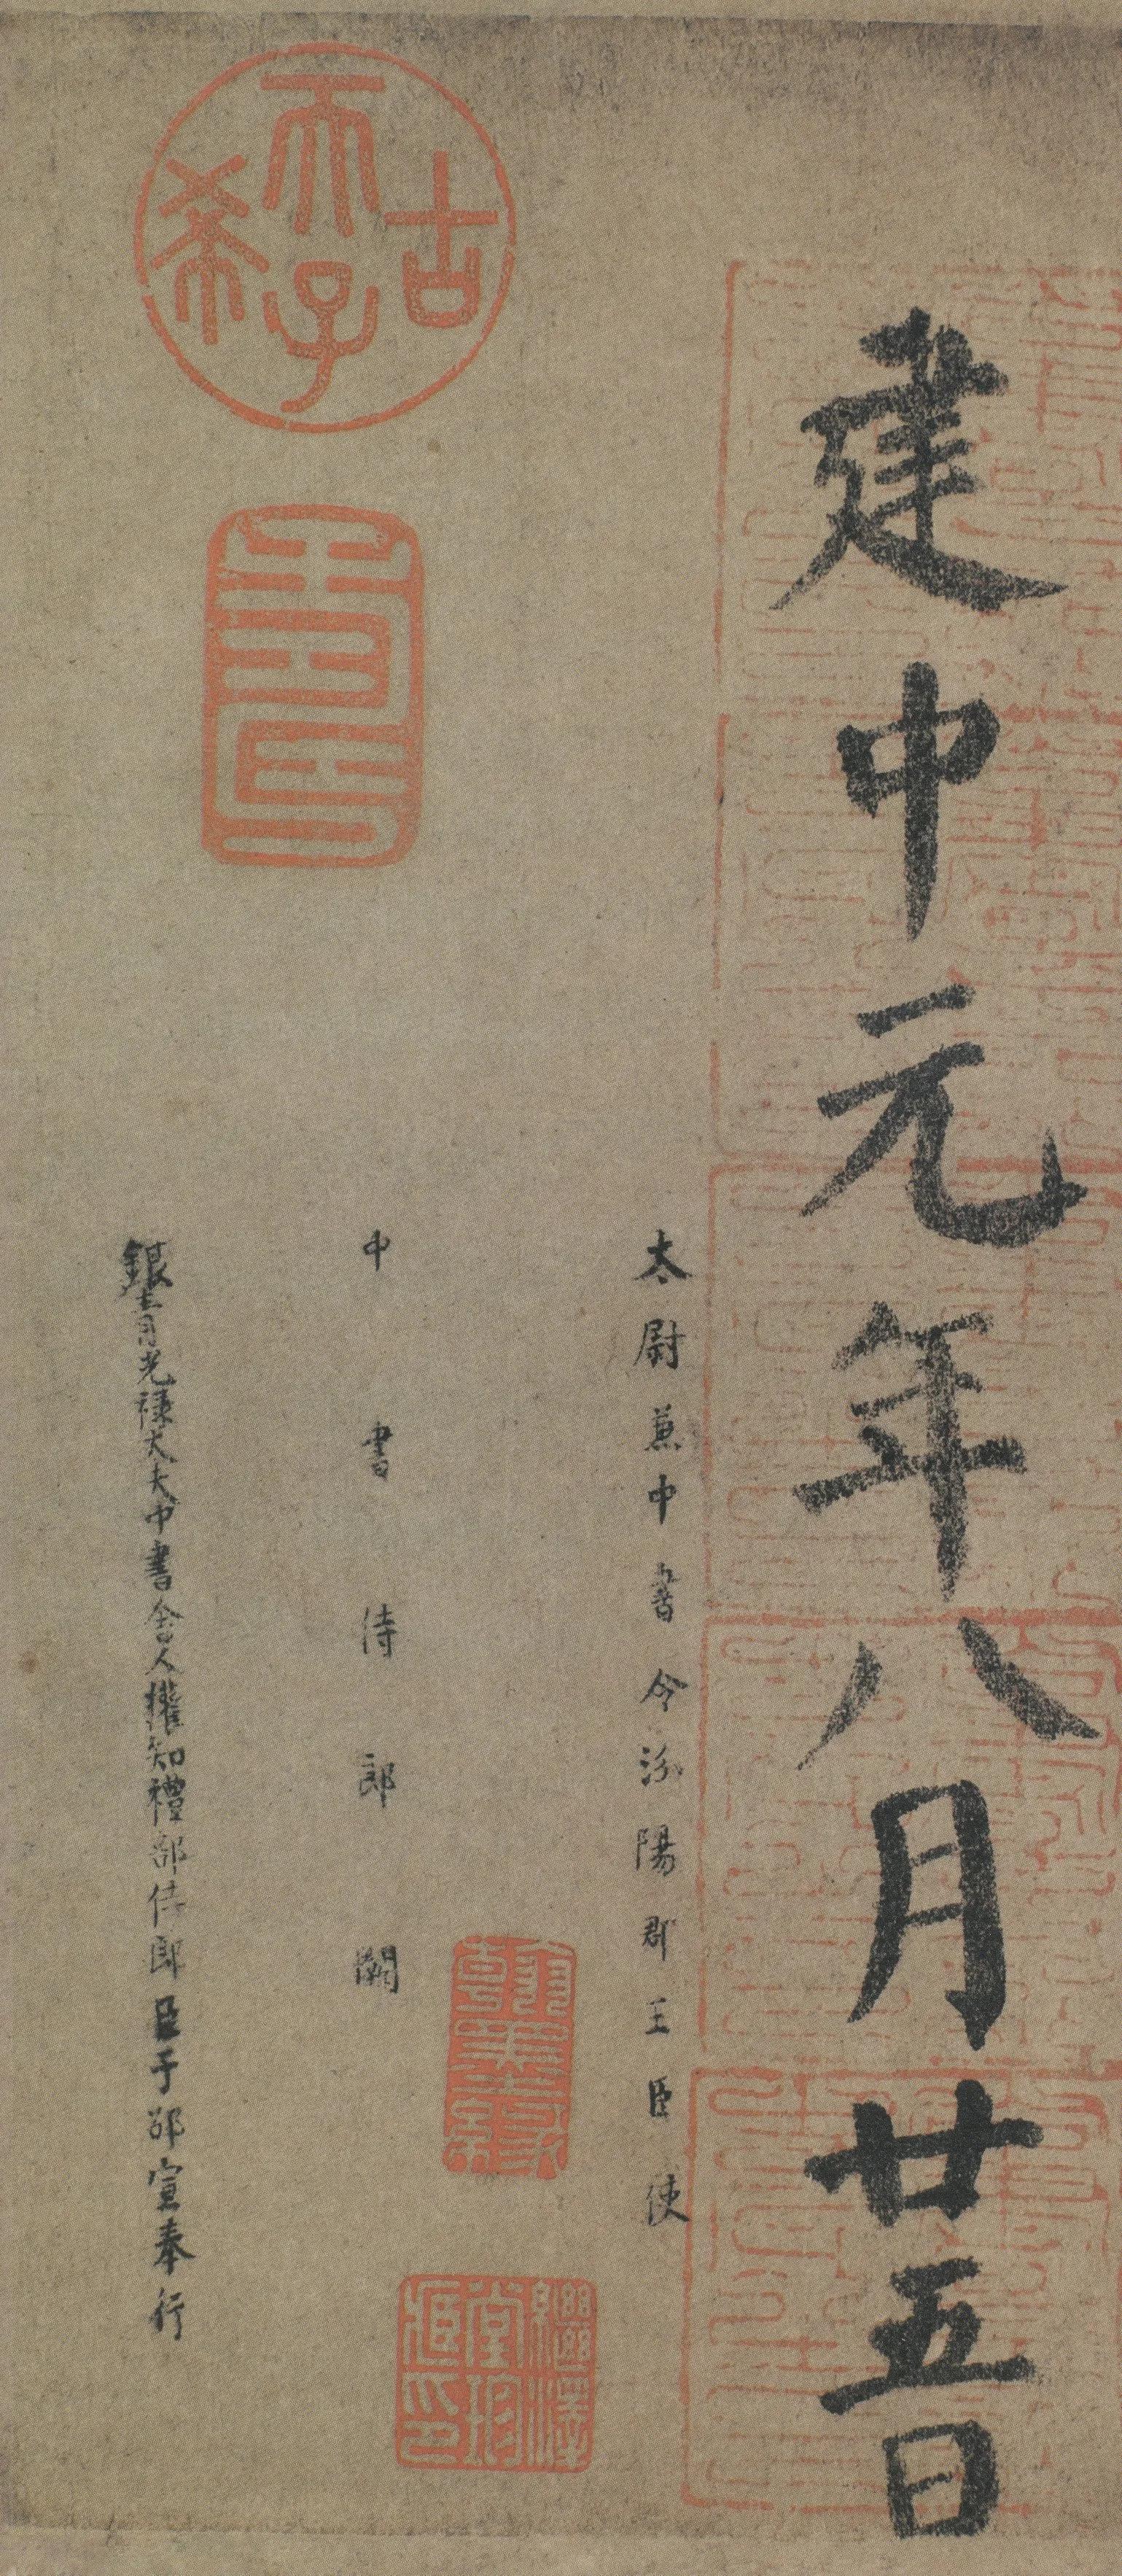 建中元年八月廿五日
太尉兼中書令汾陽郡王臣使
中書侍郎闕
銀青光禄大夫中書舍人權知禮部侍郎臣于邵宣奉行
古希天子
壽